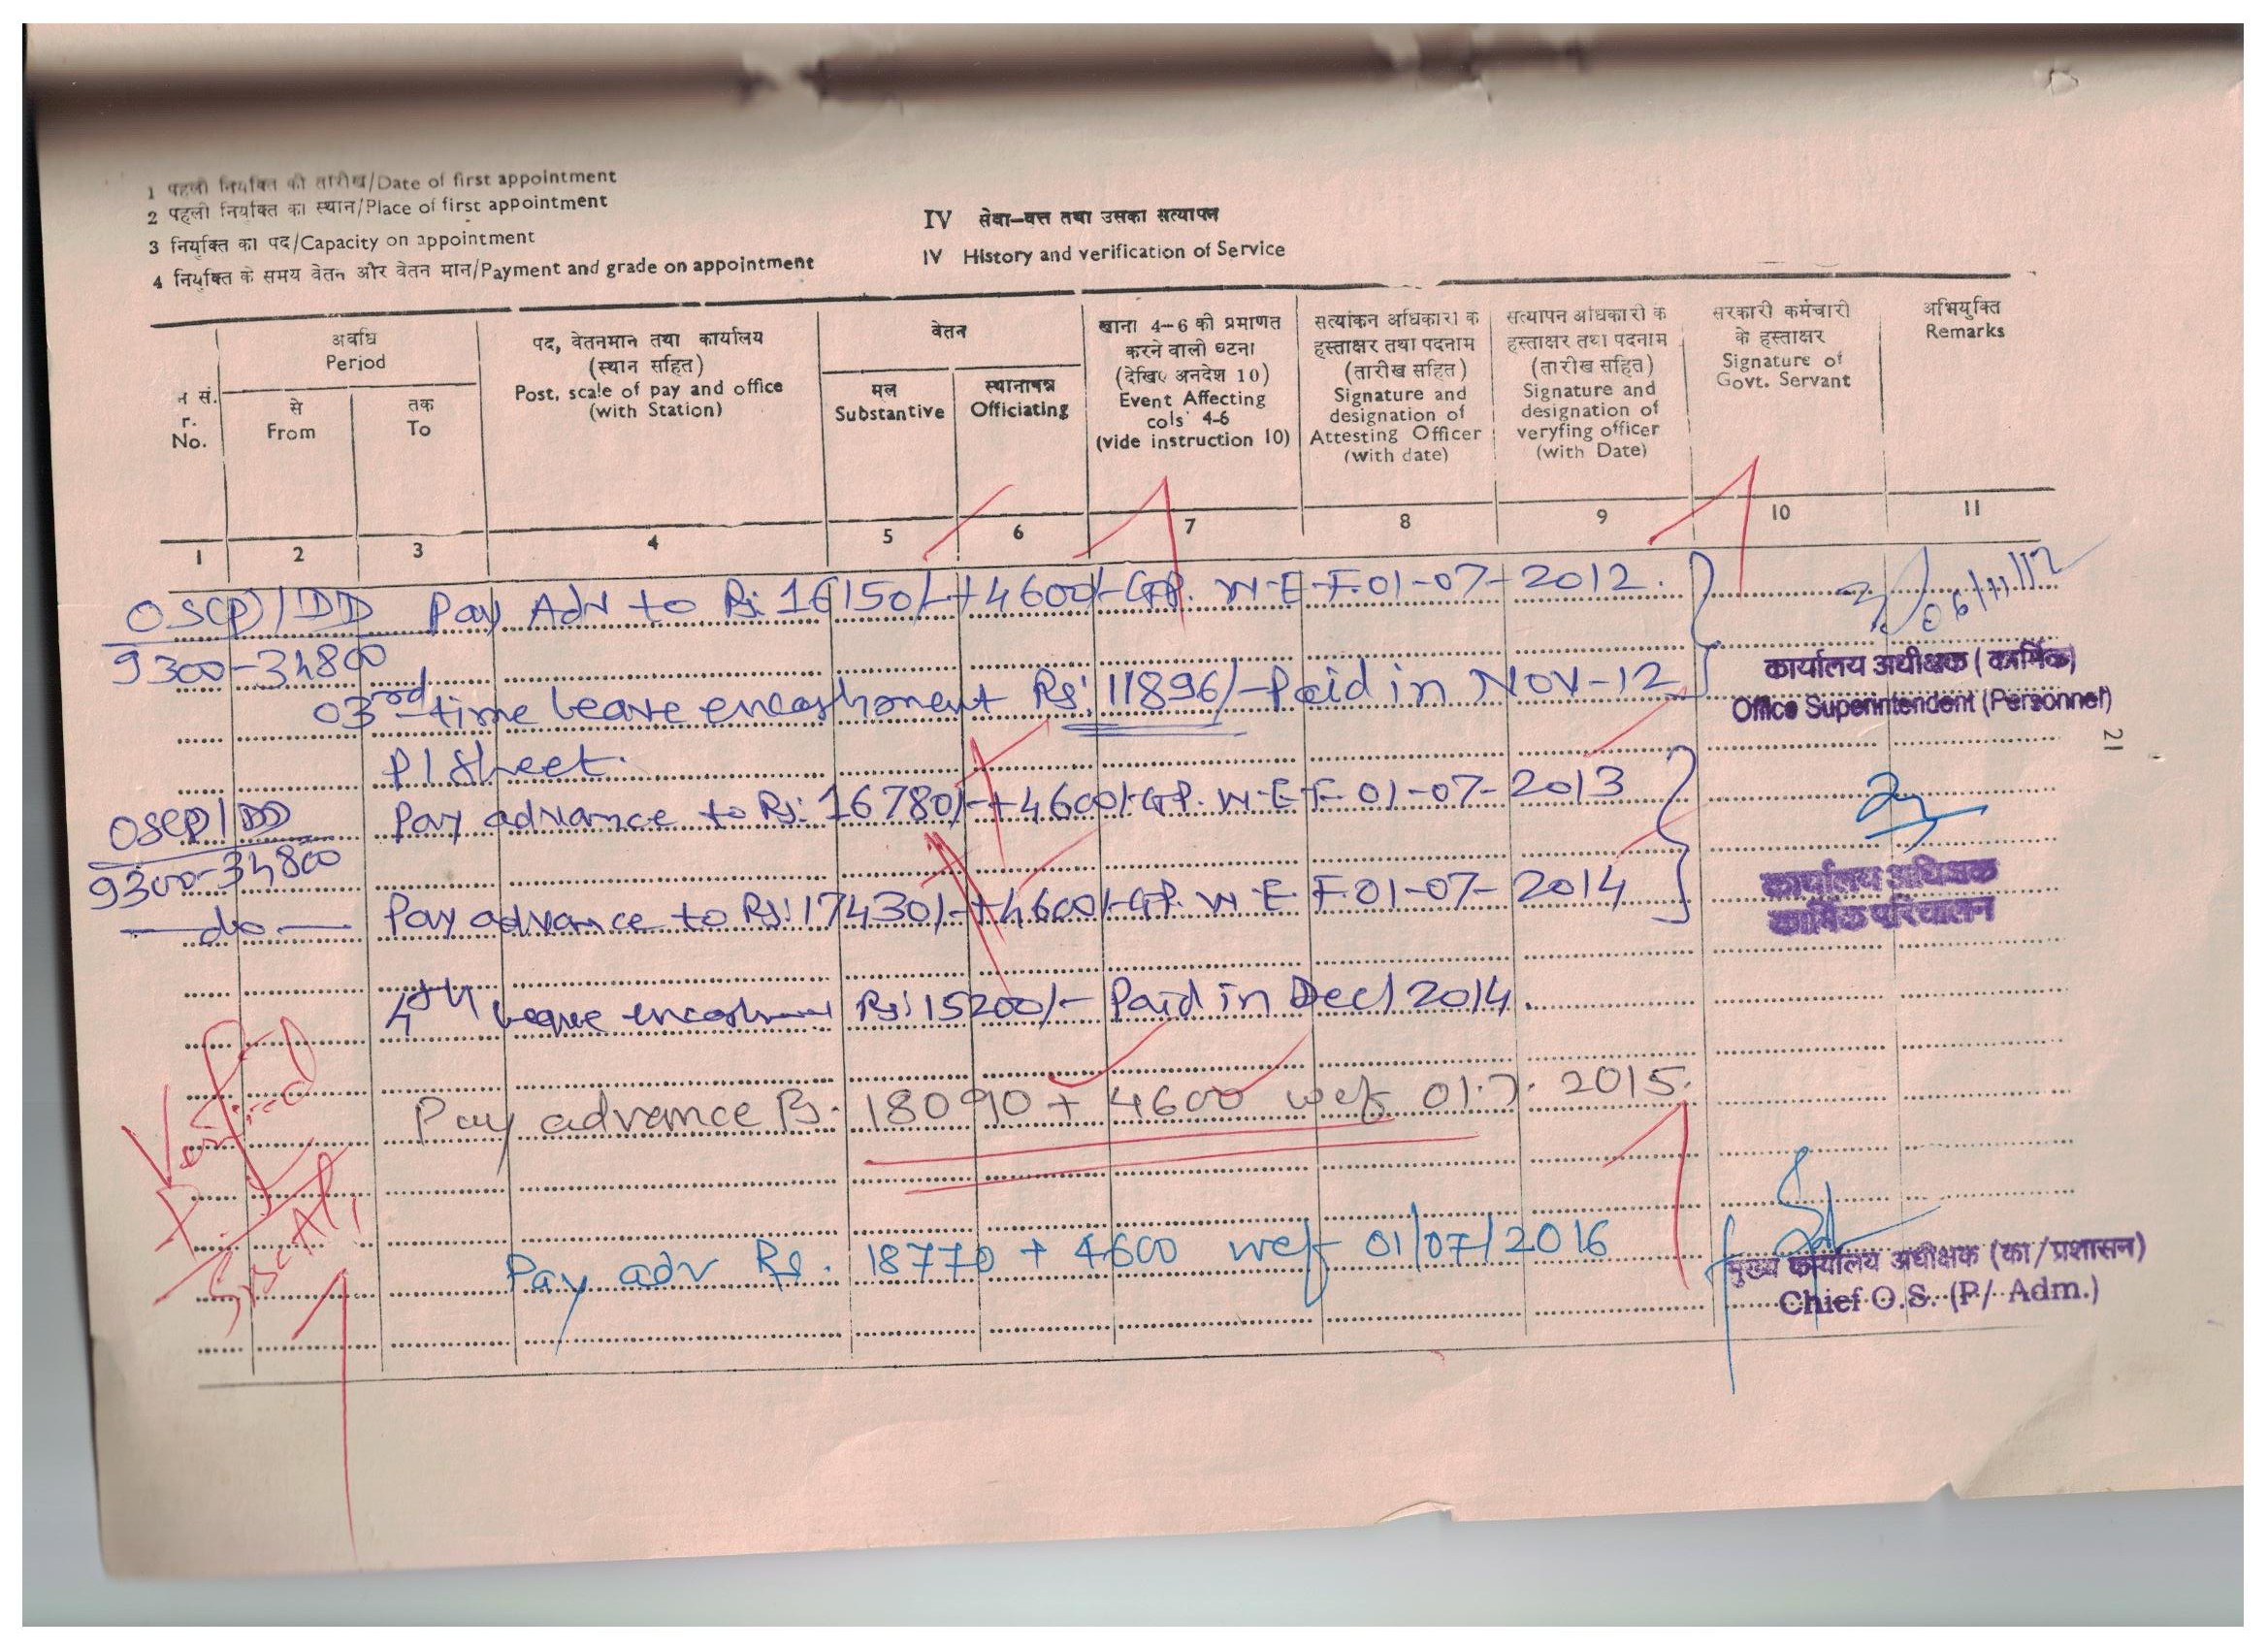 1 पहली नियुक्ति की तारीख/Date of first appointment
2 पहली नियुक्ति का स्थान/Place of first appointment
3 नियुक्ति का पद/Capacity on appointment
4 नियुक्ति के समय वेतन और वेतन मान/Payment and grade on appointment
IV सेवा-वत्त तथा उसका सत्यापन
IV History and verification of Service
न सं.
r.
No.
अवधि
Period
से
From
तक
To
पद, वेतनमान तथा कार्यालय
(स्थान सहित)
Post, scale of pay and office
(with Station)
वेतन
मल
Substantive
स्थानापन्न
Officiating
खाना 4-6 की प्रमाणत
करने वाली घटना
(देखिए अनदेश 10)
Event Affecting
cols' 4-6
(vide instruction 10)
सत्यांकन अधिकारी क
हस्ताक्षर तथा पदनाम
(तारीख सहित)
Signature and
designation of
Attesting Officer
(with date)
सत्यापन अधिकारी क
हस्ताक्षर तथा पदनाम
(तारीख सहित)
Signature and
designation of
veryfing officer
(with Date)
सरकारी कर्मचारी
के हस्ताक्षर
Signature of
Govt. Servant
अभियुक्ति
Remarks
1 2 3 4 5 6 7 8 9 10 11
OSCP/DD Pay Adv to Rs: 16150/-+4600/-GP. W-E-F.01-07-2012.
9300-34800
03rd time leave encashment Rs: 11896/- Paid in NOV-12
P/Sheet.
OSCP/DD Pay advance to Rs: 16780/-+4600/-GP. W-E-F-01-07-2013
9300-34800
-do- Pay advance to Rs: 17430/-+4600/-GP. W-E-F.01-07-2014
4th leave encashment Rs: 15200/- Paid in Dec/2014.
Pay advance Rs. 18090 + 4600 wef 01.7.2015.
Pay adv Rs. 18770 + 4600 wef 01/07/2016
Verified
06/11/12
कार्यालय अधीक्षक (कार्मिक)
Office Superintendent (Personnel)
21
कार्यालय अधिक्षक
कार्मिक परिचालन
मुख्य कार्यालय अधीक्षक (का/प्रशासन)
Chief O.S. (P/ Adm.)